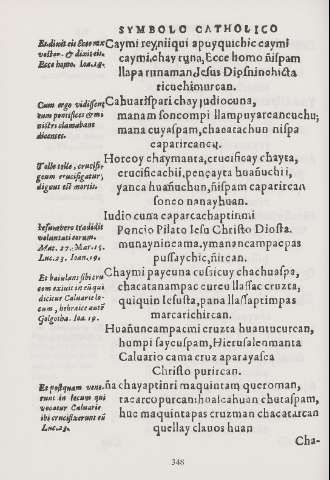 SYMBOLO CATHOLICO
Et dixit eis Ecce rex
vester. & dixit eis.
Ecce homo. Ioan.19.
Cum ergo vidissent
eum pontifices & mi-
nistri clamabant
dicentes.
Tolle tolle, crucifi-
geum crucifigatur,
dignus est mortis.
Iesum vero tradidit
voluntati eorum.
Mat. 27. Mar. 15.
Luc. 23. Ioan. 19.
Et baiulans sibi cru
cem exiuit in eũ qui
dicitur Caluariæ lo-
cum, hebraice autẽ
Golgotha. Ioa. 19.
Et postquam vene-
runt in locum qui
vocatur Caluariæ
ibi crucifixerunt eũ
Luc.23.
Caymi reyniiqui apuyquichic caymi
caymi.chay runa, Ecce homo ñispam
llapa runaman Iesus Dipsñinchicta
ricuchimurcan.
Cahuarispari chay judiocuna,
manam soncompi llampuyarcancuchu;
mana cuyaspam, chacatachun nispa
caparircancu.
Horcoy chaymanta, crucificay chayta,
crucificachij, pençayta huañuchij,
yanca huañuchun, ñispam caparircan
sonco nanayhuan.
Iudio cuna caparcachaptinmi
Poncio Pilato Iesu Christo Diosta.
munaynincama, ymanancampaepas
pussaychic, ñircan.
Chaymi paycuna cusiicuy chachuaspa,
chacatanampac cureu llassac cruzta,
quiquin Iesusta, pana llassaptimpas
marcarichircan.
Huañuncampacmi cruzta huantucurcan,
humpi saycuspam, Hierusalenmanta
Caluario cama cruz aparayasca
Christo purircan.
ña chayaptinri maquintam queroman,
tacarcopurcan: hoalcahuan chutaspam,
huc maquintapas cruzman chacatarcan
quellay clauos huan
Cha-
348